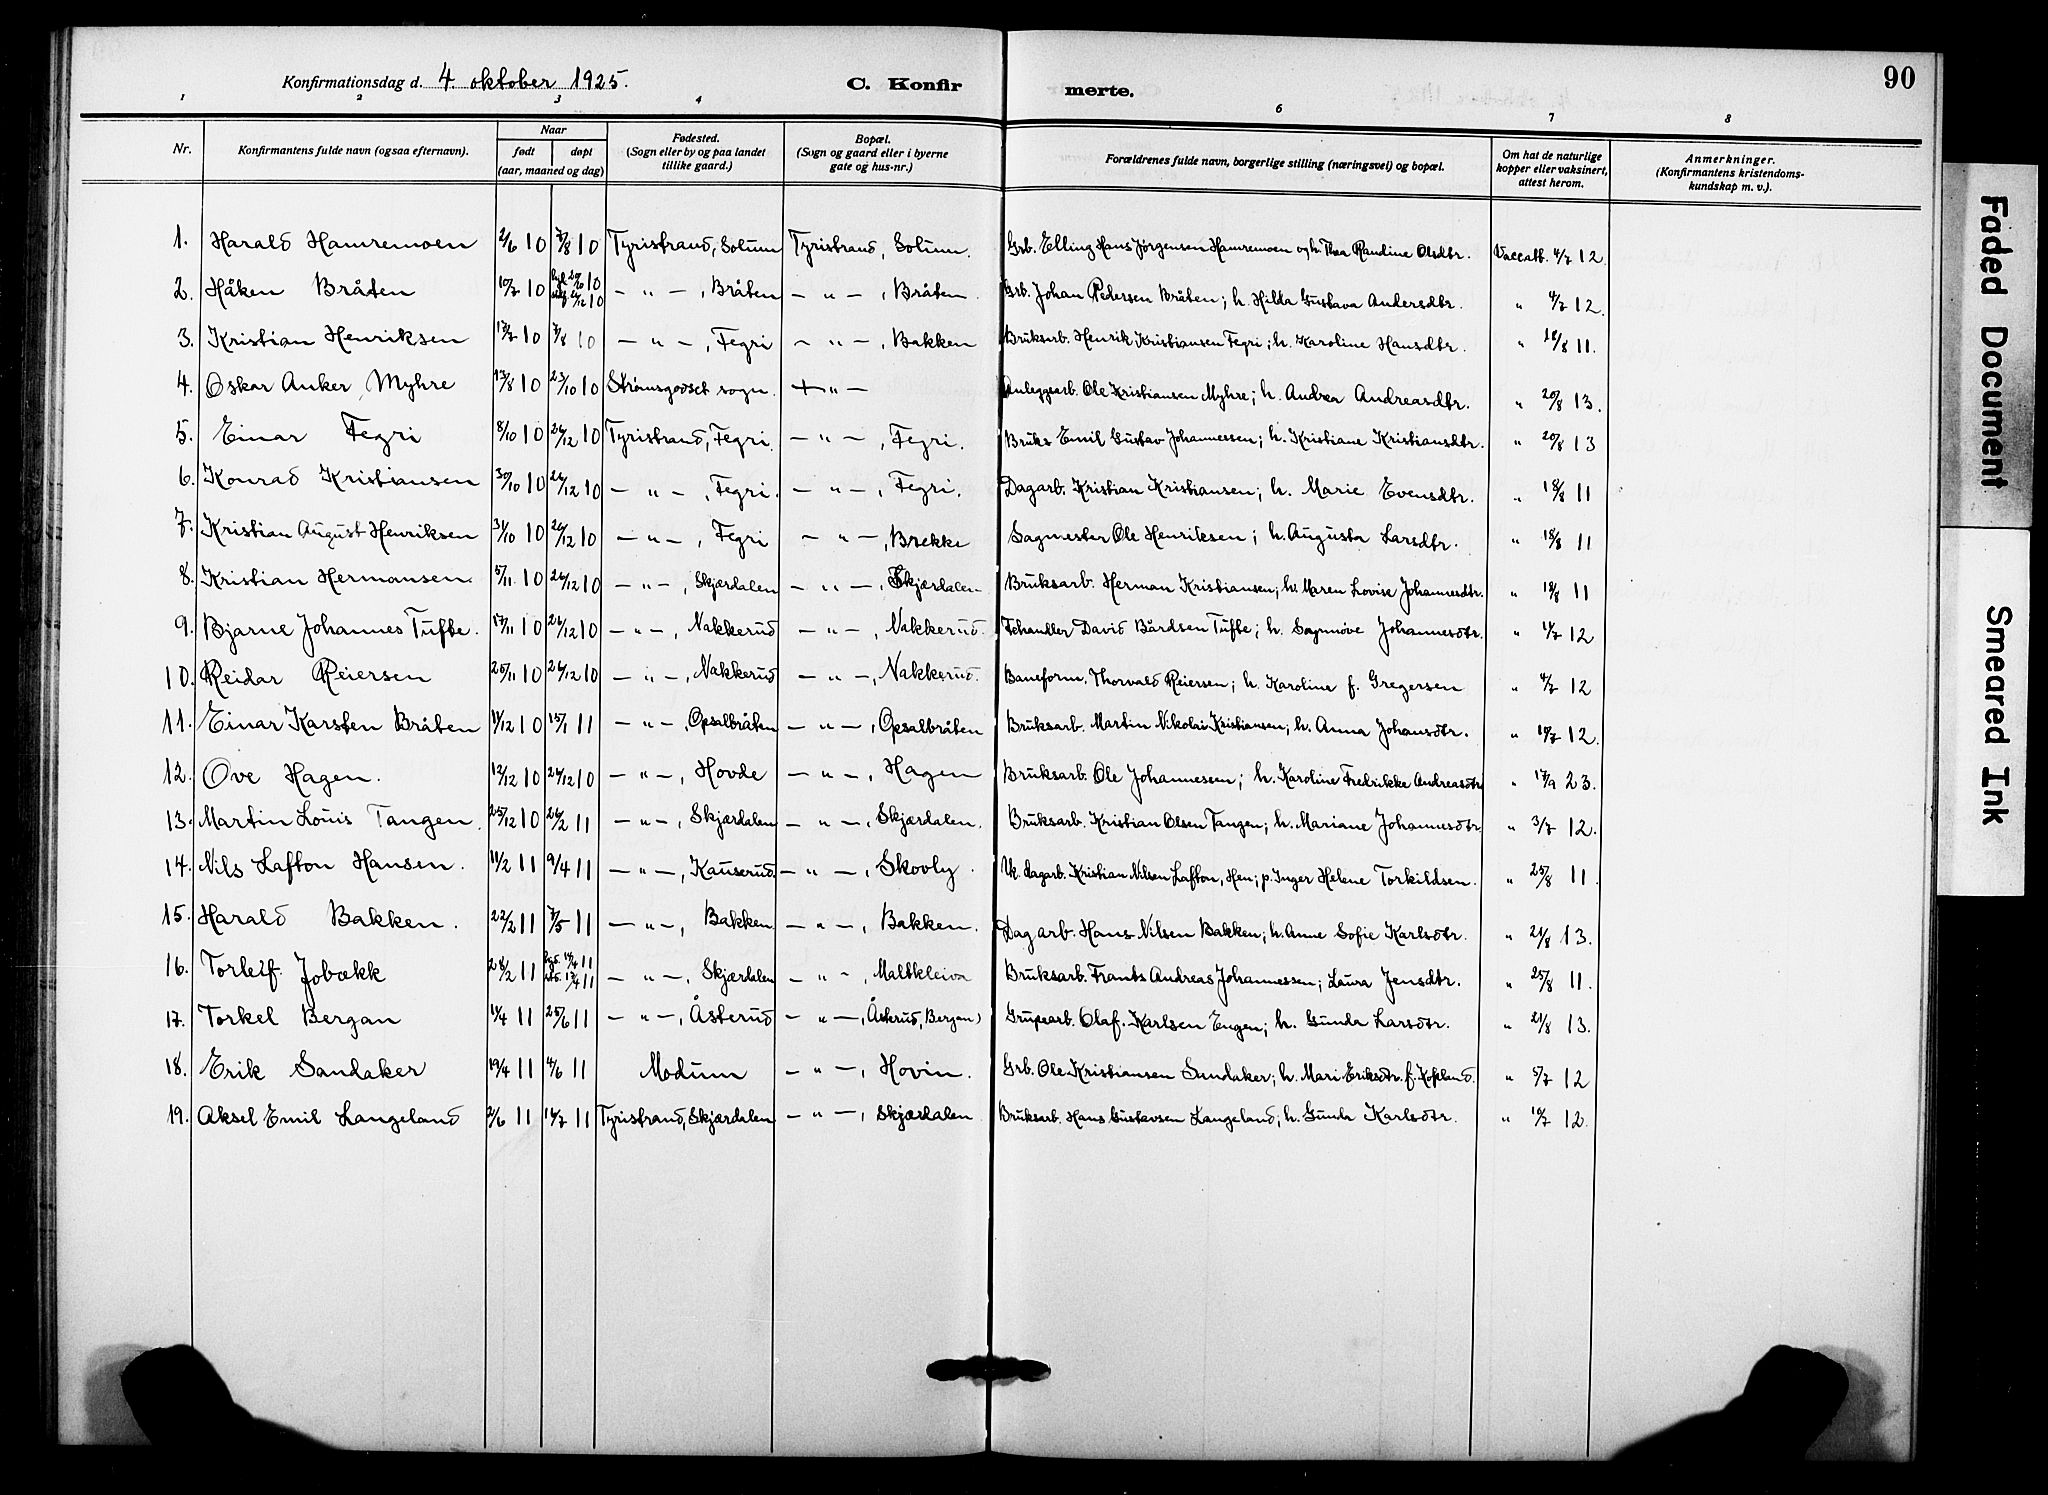 90
Konfirmationsdag d. 4. oktober 1925.
C. Konfir merte.
1 2 3 4 6 7 8
Nr. Konfirmantens fulde navn (ogsaa efternavn). Naar født døpt (aar, maaned og dag) Fødested. (Sogn eller by og paa landet tillike gaard.) Bopæl. (Sogn og gaard eller i byerne gate og hus-nr.) Forældrenes fulde navn, borgerlige stilling (næringsvei) og bopæl. Om hat de naturlige kopper eller vaksinert, attest herom. Anmerkninger. (Konfirmantens kristendoms-kundskap m. v.).
1. Harald Hamremoen 2/6 10 7/8 10 Tyristrand, Solum Tyristrand, Solum. Grb. Elling Hans Jørgensen Hamremoen og h. Thea Randine Olsdtr. Vaccatt. 4/7 12.
2. Håken Bråten 10/7 10 10 10 — " — , Bråten — " — , Bråten. Grb. Johan Pedersen Bråten; h. Hilda Gustava Andersdtr. " 4/7 12.
3. Kristian Henriksen 17/7 10 7/8 10 — " — , Fegri — " — , Bakken Bruksarb. Henrik Kristiansen Fegri; h. Karoline Hansdtr. " 18/8 11.
4. Oskar Anker Myhre 13/8 10 23/10 10 Strømsgodset sogn. — " — Anleggsarb. Ole Kristiansen Myhre; h. Andrea Andreasdtr. " 20/8 13.
5. Einar Fegri 8/10 10 26/12 10 Tyristrand, Fegri. — " — , Fegri. Bruks Emil Gustav Johannessen; h. Kristiane Kristiansdtr. " 20/8 13
6. Konrad Kristiansen 30/10 10 26/12 10 — " — , Fegri. — " — , Fegri. Dagarb. Kristian Kristiansen; h. Marie Evensdtr. " 18/8 11
7. Kristian August Henriksen 31/10 10 26/12 10 — " — , Fegri — " — , Brekke Sagmester Ole Henriksen; h. Augusta Larsdtr. " 18/8 11
8. Kristian Hermansen. 5/11 10 26/12 10 — " — , Skjærdalen — " — , Skjærdalen Bruksarb. Herman Kristiansen; h. Maren Lovise Johannesdtr. " 18/8 11
9. Bjarne Johannes Tufte. 17/11 10 26/12 10 — " — , Nakkerud — " — , Nakkerud. David Bårdsen Tufte; h. Sagnnøve Johannesdtr. " 4/7 12
10. Reidar Reiersen 25/11 10 26/12 10 — " — , Nakkerud — " — , Nakkerud. Baneform. Thorvald Reiersen; h. Karoline f. Gregersen " 4/7 12
11. Einar Karsten Bråten 11/12 10 15/1 11 — " — , Opsalbråten — " — , Opsalbråten Bruksarb. Martin Nikolai Kristiansen; h. Anna Johansdtr. " 10/7 12.
12. Ove Hagen. 12/12 10 26/12 10 — " — , Hovde — " — , Hagen Bruksarb. Ole Johannesen; h. Karoline Fredrikke Andreasdtr " 17/9 23.
13. Martin Louis Tangen. 25/12 10 26/2 11 — " — , Skjærdalen — " — , Skjærdalen. Bruksarb. Kristian Olsen Tangen; h. Mariane Johannesdtr. " 3/7 12.
14. Nils Lafton Hansen. 11/2 11 9/4 11 — " — , Kauserud. — " — , Skovly. Uk. dagarb. Kristian Nilsen Lafton, Hen; p. Inger Helene Torkildsen. " 25/8 11.
15. Harald Bakken. 22/2 11 7/5 11 — " — , Bakken — " — , Bakken. Dagarb. Hans Nilsen Bakken; h. Anne Sofie Karlsdtr. " 21/8 13.
16. Torleif Jobækk 28/2 11 11 11 — " — , Skjærdalen — " — , Maltkleiva Bruksarb. Frants Andreas Johannessen; Laura Jensdtr. " 25/8 11.
17. Torkel Bergan 11/4 11 25/6 11 — " — , Åsterud — " — , Åsterud, Bergan) Grupearb. Olaf Karlsen Engen; h. Gunda Larsdtr. " 21/8 13.
18. Erik Sandaker 19/4 11 4/6 11 Modum — " — , Hovin. Grb. Ole Kristiansen Sandaker; h. Mari Eriksdtr. f. Kopland. " 5/7 12
19. Aksel Emil Langeland 2/6 11 16/7 11 Tyristrand, Skjærdalen — " — , Skjærdalen Bruksarb. Hans Gustavsen Langeland, h. Gunda Karlsdtr. " 10/7 12.
Faded Document
Smeared Ink